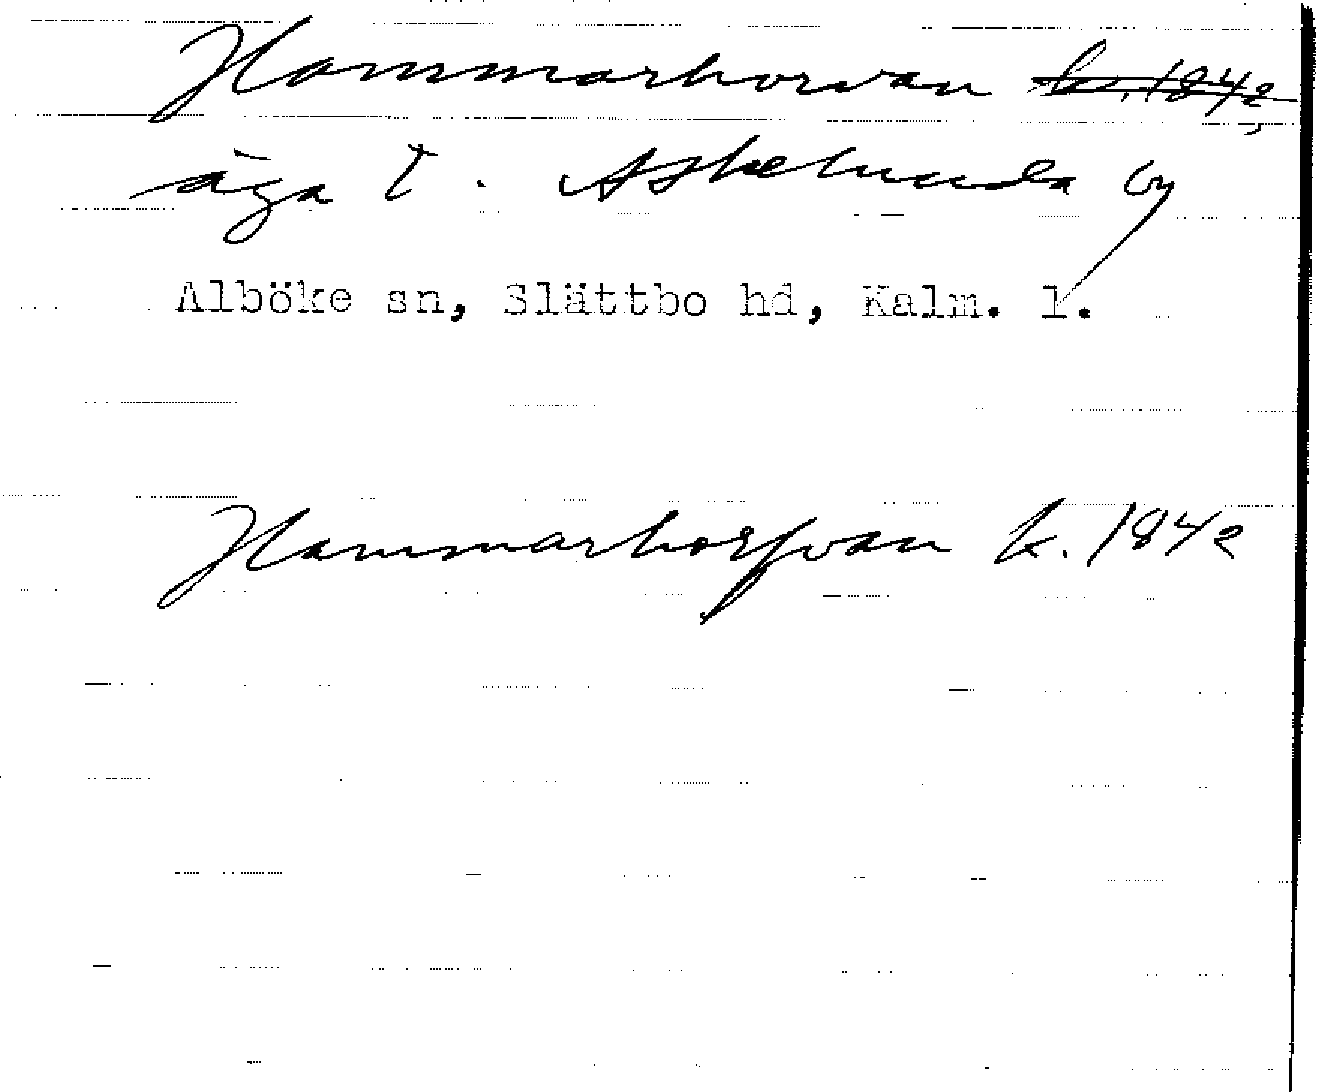 Hammarhorvan k. 1842,
äga t. Askelunda by
Alböke sn, Slättbo hd, Kalm. l.
Hammarhorfvan k. 1842